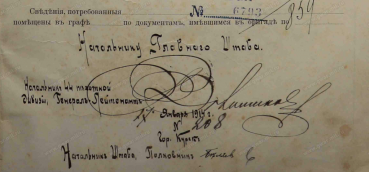 Свѣдѣнія, потребованныя
№ 6793
помѣщены въ графѣ по документамъ, имѣющимся въ бригадѣ по
859
Начальнику Главнаго Штаба.
Начальникъ 44 пѣхотной
дивизіи, Генералъ-Лейтенантъ
Января 1914 г.
№ 208
Гор. Курскъ
Начальникъ Штаба, Полковникъ